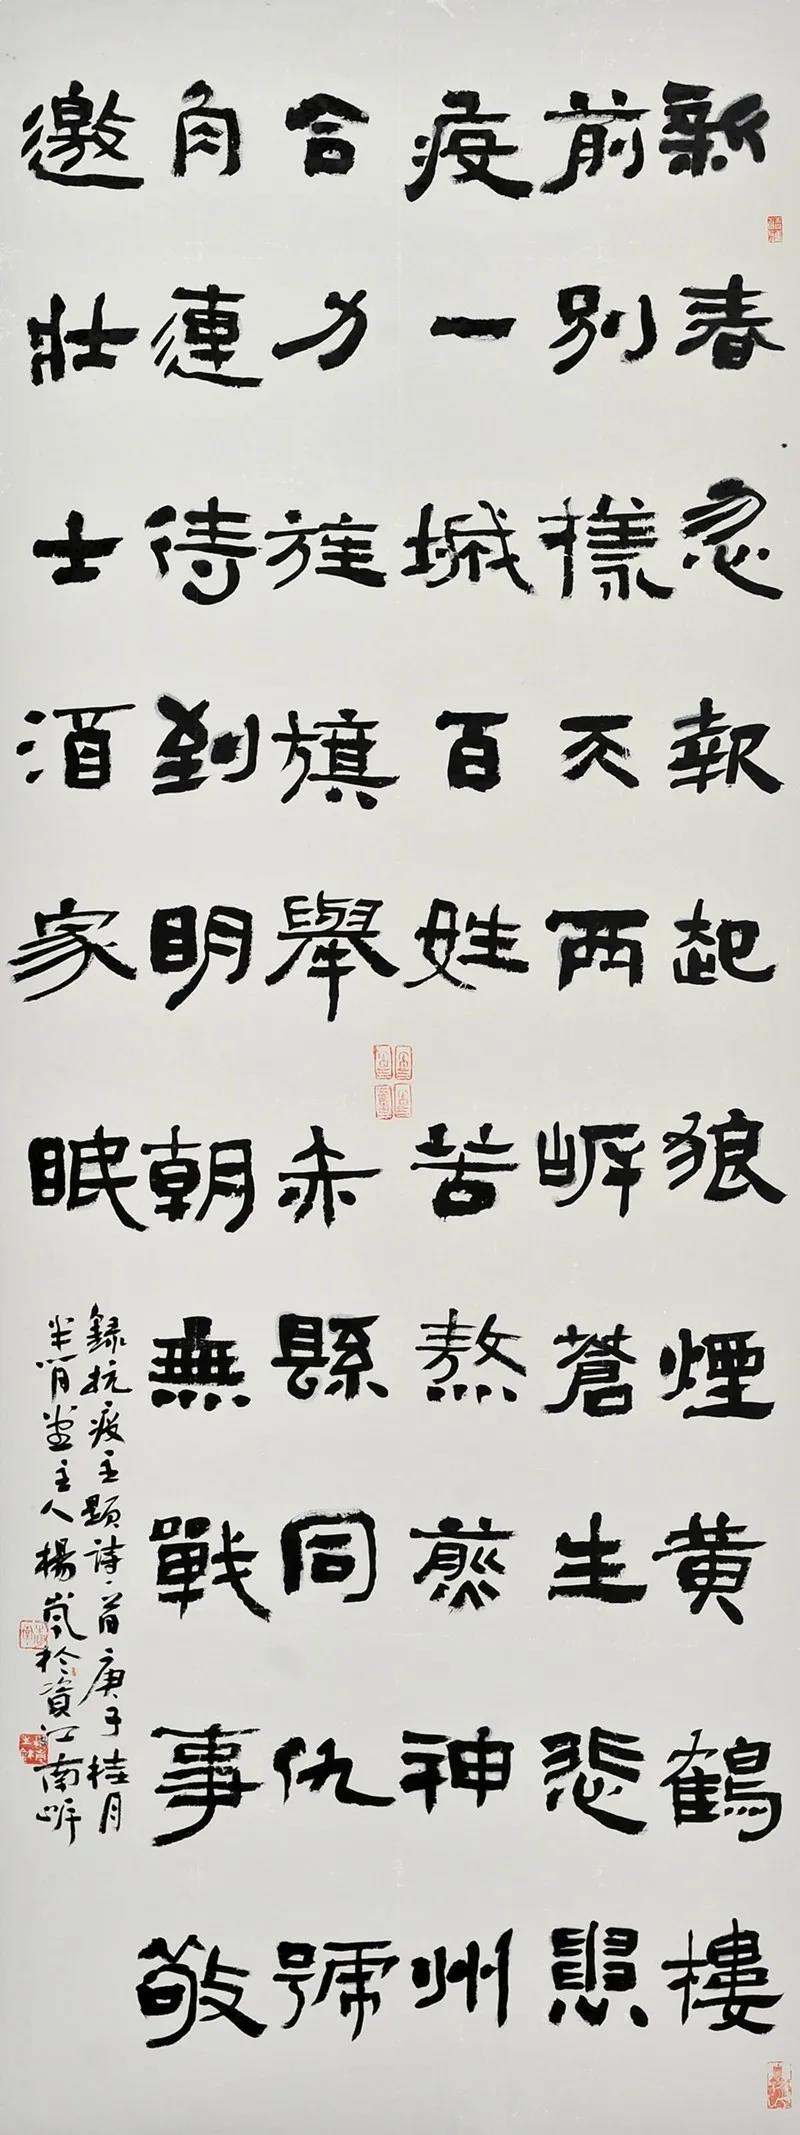 新春忽報起狼煙黄鶴樓
前别樣天兩岸蒼生悲懼
疫一城百姓苦熬煎神州
合力旌旗舉赤縣同仇號
角連待到明朝無戰事敬
邀壯士酒家眠
錄抗疫主題詩一首庚子桂月
半月堂主人楊嵐於資江南岸